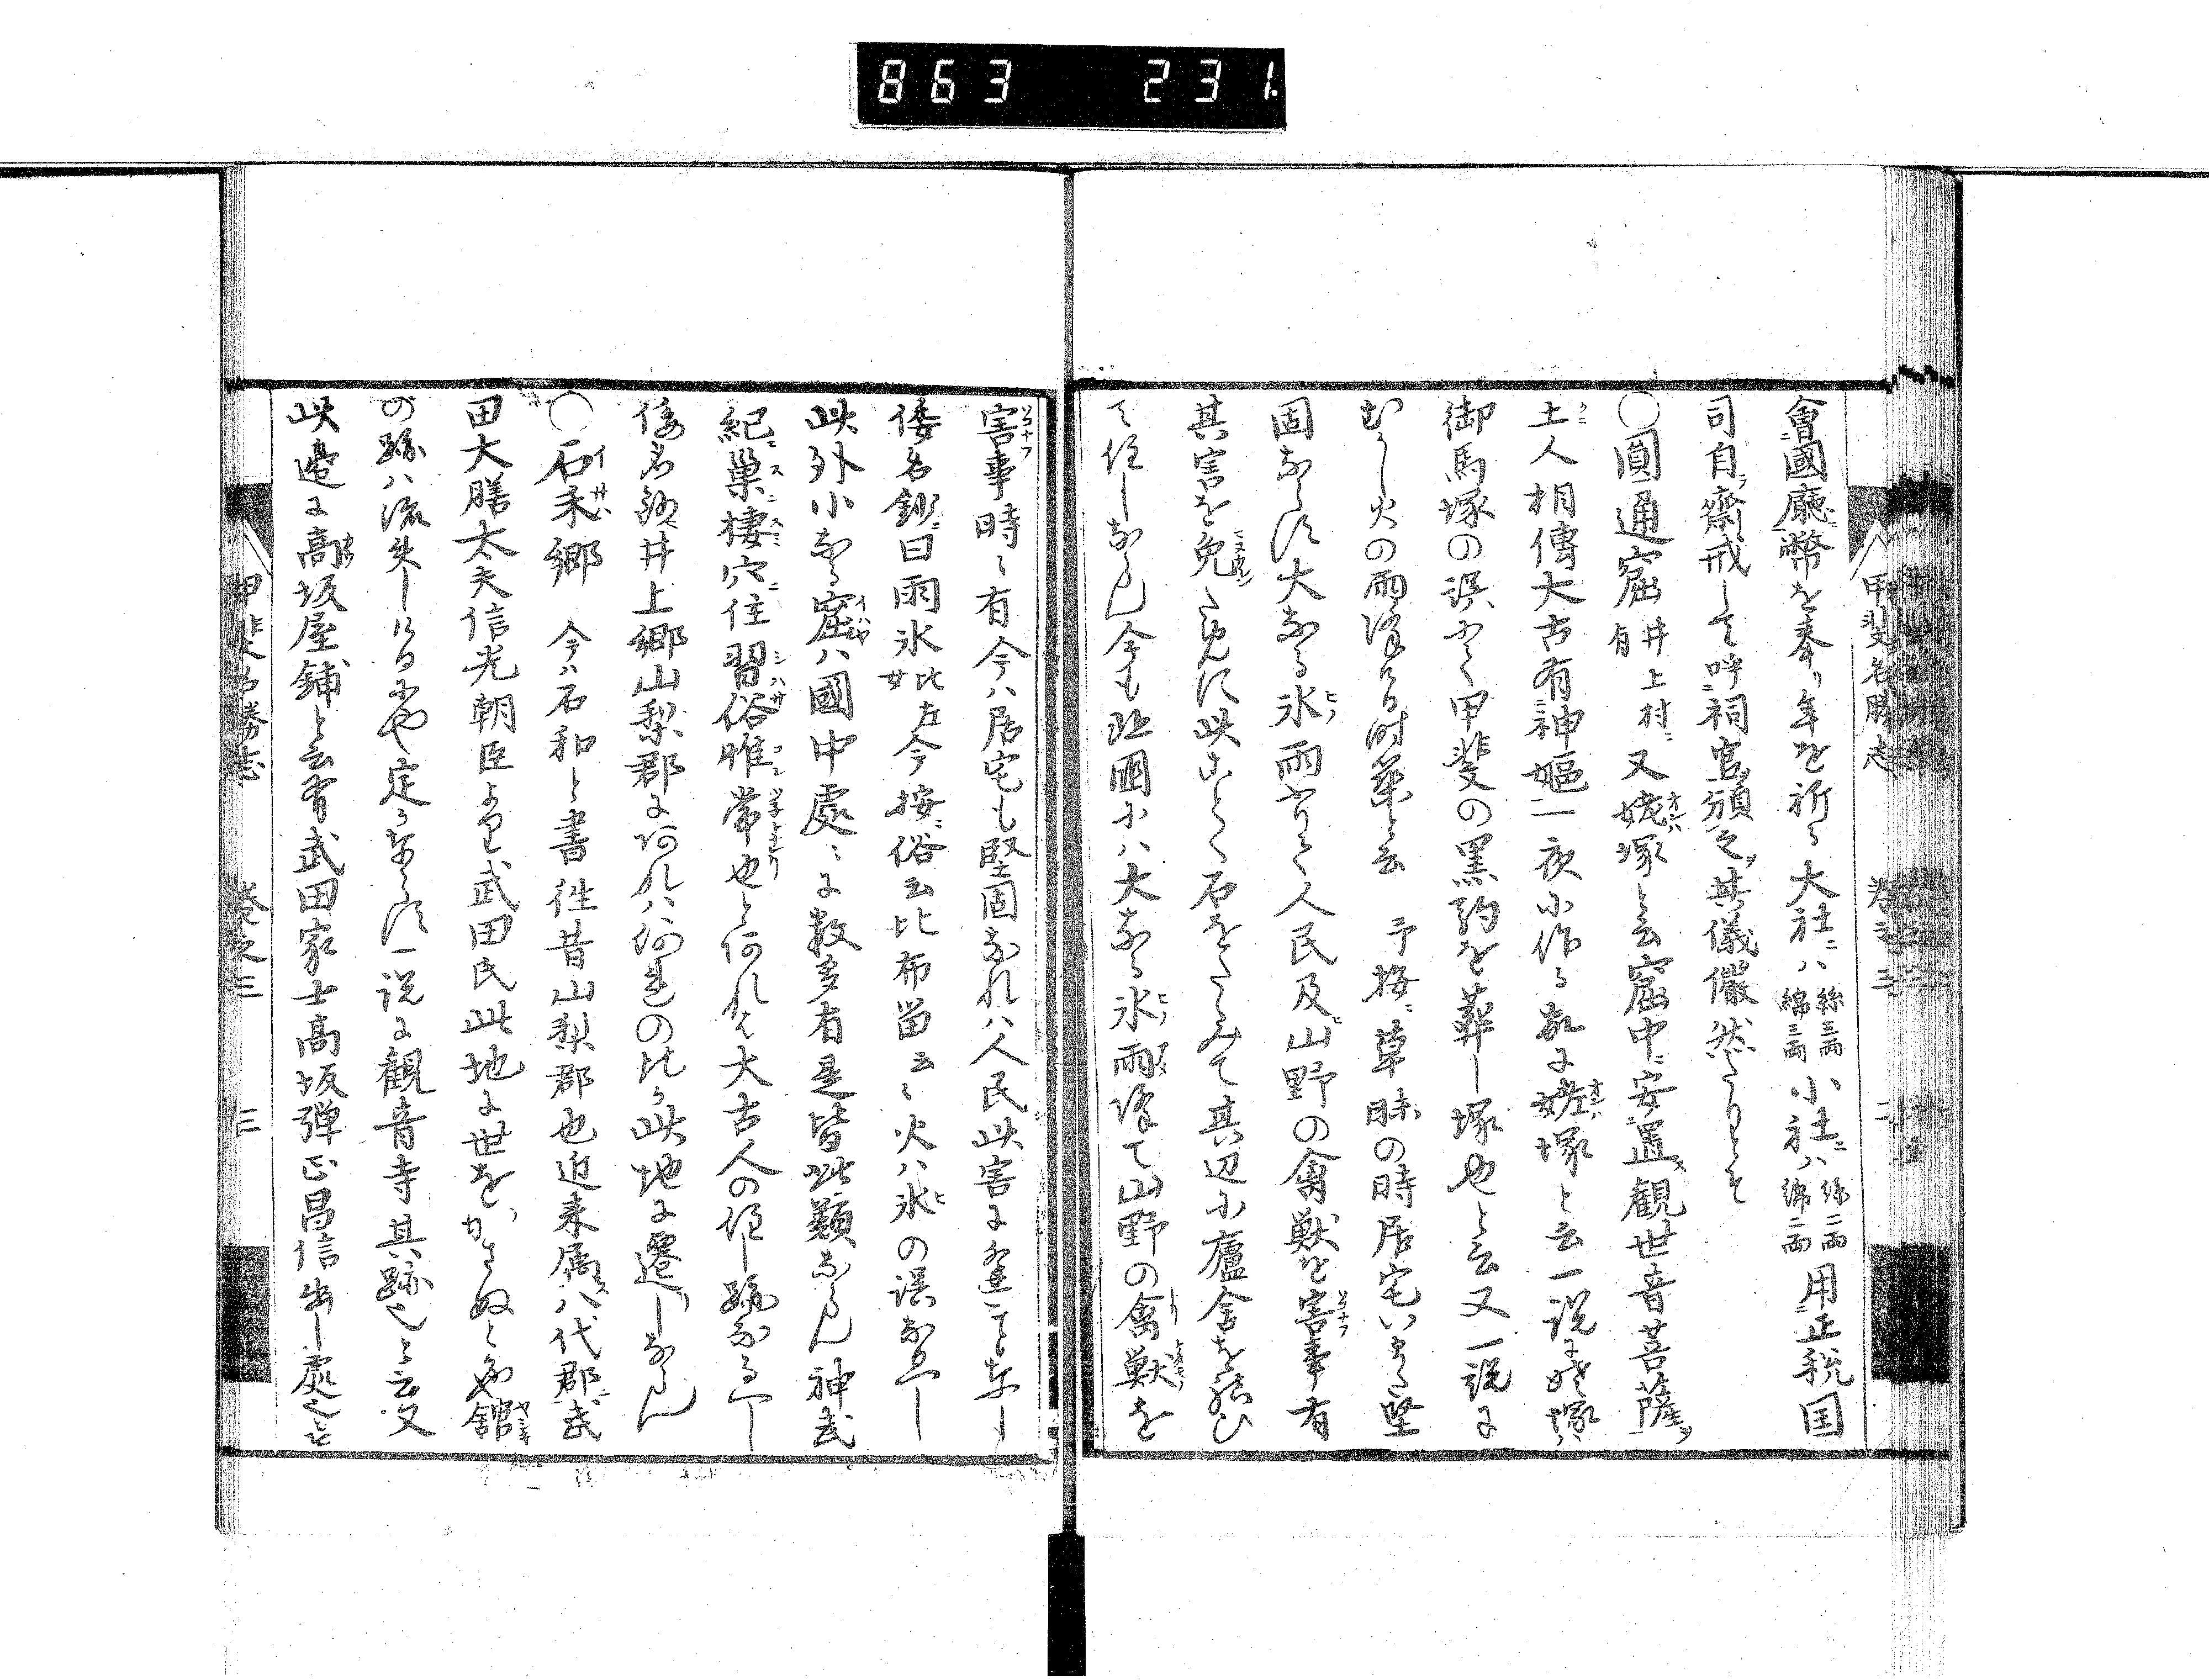 863 231.
會國廳幣を奉り年を祈る大社ニハ絲三両綿三両小社ニハ絲二両綿二両用正税国
司自齋戒して呼祠官頒之其儀儼然たりとそ
○圓通窟 井上村ニ有 又姥塚と云窟中ニ安置観世音菩薩
土人相傳大古有神嫗一夜小作る故に姥塚と云一説に姥塚ハ
御馬塚の誤にて甲斐の黒駒を葬し塚也と云又一説に
むかし火の雨降ける時築と云 予按ニ草昧の時居宅いまた堅
固ならす大なる氷雨ふりて人民及山野の禽獣を害事有
其害を免ためニ此ことく石をたゝみて其辺小廬舎を結ひ
て住しならん今も北国小ハ大なる氷雨降て山野の禽獣を
害事時々有今ハ居宅も堅固なれハ人民此害に逢ことなし
倭名鈔ニ曰雨氷 比女 左今按ニ俗云比布留云々火ハ氷の誤なるへし
此外小なる窟ハ國中處々に数多有是皆此類ならん神武
紀ニ巣棲穴住習俗惟常也と何れも大古人の住し跡なるへし
倭名鈔ニ井上郷山梨郡に何れの比か此地に遷しならん
○石禾郷 今ハ石和と書往昔山梨郡也近来属八代郡ニ武
田大膳太夫信光朝臣より武田氏此地に世をかさぬと館
の跡ハ流失しけるにや定かならす一説に観音寺其跡也と云又
此邉に高坂屋鋪と云有武田家士高坂弾正昌信出し處也と
甲斐名勝志 巻之三 二
甲斐名勝志 巻之三 三